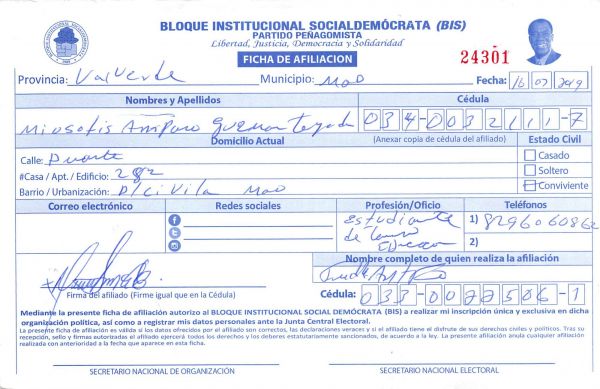 BLOQUE INSTITUCIONAL SOCIALDEMÓCRATA (BIS)
PARTIDO PEÑAGOMISTA
Libertad, Justicia, Democracia y Solidaridad
FICHA DE AFILIACION
24301
Provincia: Valverde Municipio: Mao Fecha: 16 07 2019
Nombres y Apellidos Cédula
Miosotis Amparo Guzman Tejada 034-0032111-7
Domicilio Actual (Anexar copia de cédula del afiliado) Estado Civil
Calle: Duarte Casado
#Casa / Apt. / Edificio: 282 Soltero
Barrio / Urbanización: P/Civila Mao Conviviente
Correo electrónico Redes sociales Profesión/Oficio Teléfonos
Estudiante 1) 8296060862
de
2)
Nombre completo de quien realiza la afiliación
Firma del afiliado (Firme igual que en la Cédula)
Cédula: 033-0022506-1
Mediante la presente ficha de afiliación autorizo al BLOQUE INSTITUCIONAL SOCIAL DEMÓCRATA (BIS) a realizar mi inscripción única y exclusiva en dicha
organización política, así como a registrar mis datos personales ante la Junta Central Electoral.
La presente ficha de afiliación es válida si los datos ofrecidos por el afiliado son correctos, las declaraciones veraces y si el afiliado tiene el disfrute de sus derechos civiles y políticos. Tras su
recepción, sello y firmas autorizadas el afiliado ejercerá todos los derechos y los deberes estatutariamente sancionados, de acuerdo a la ley. La presente afiliación anula cualquier afiliación
realizada con anterioridad a la fecha que aparece en esta ficha.
SECRETARIO NACIONAL DE ORGANIZACIÓN SECRETARIO NACIONAL ELECTORAL